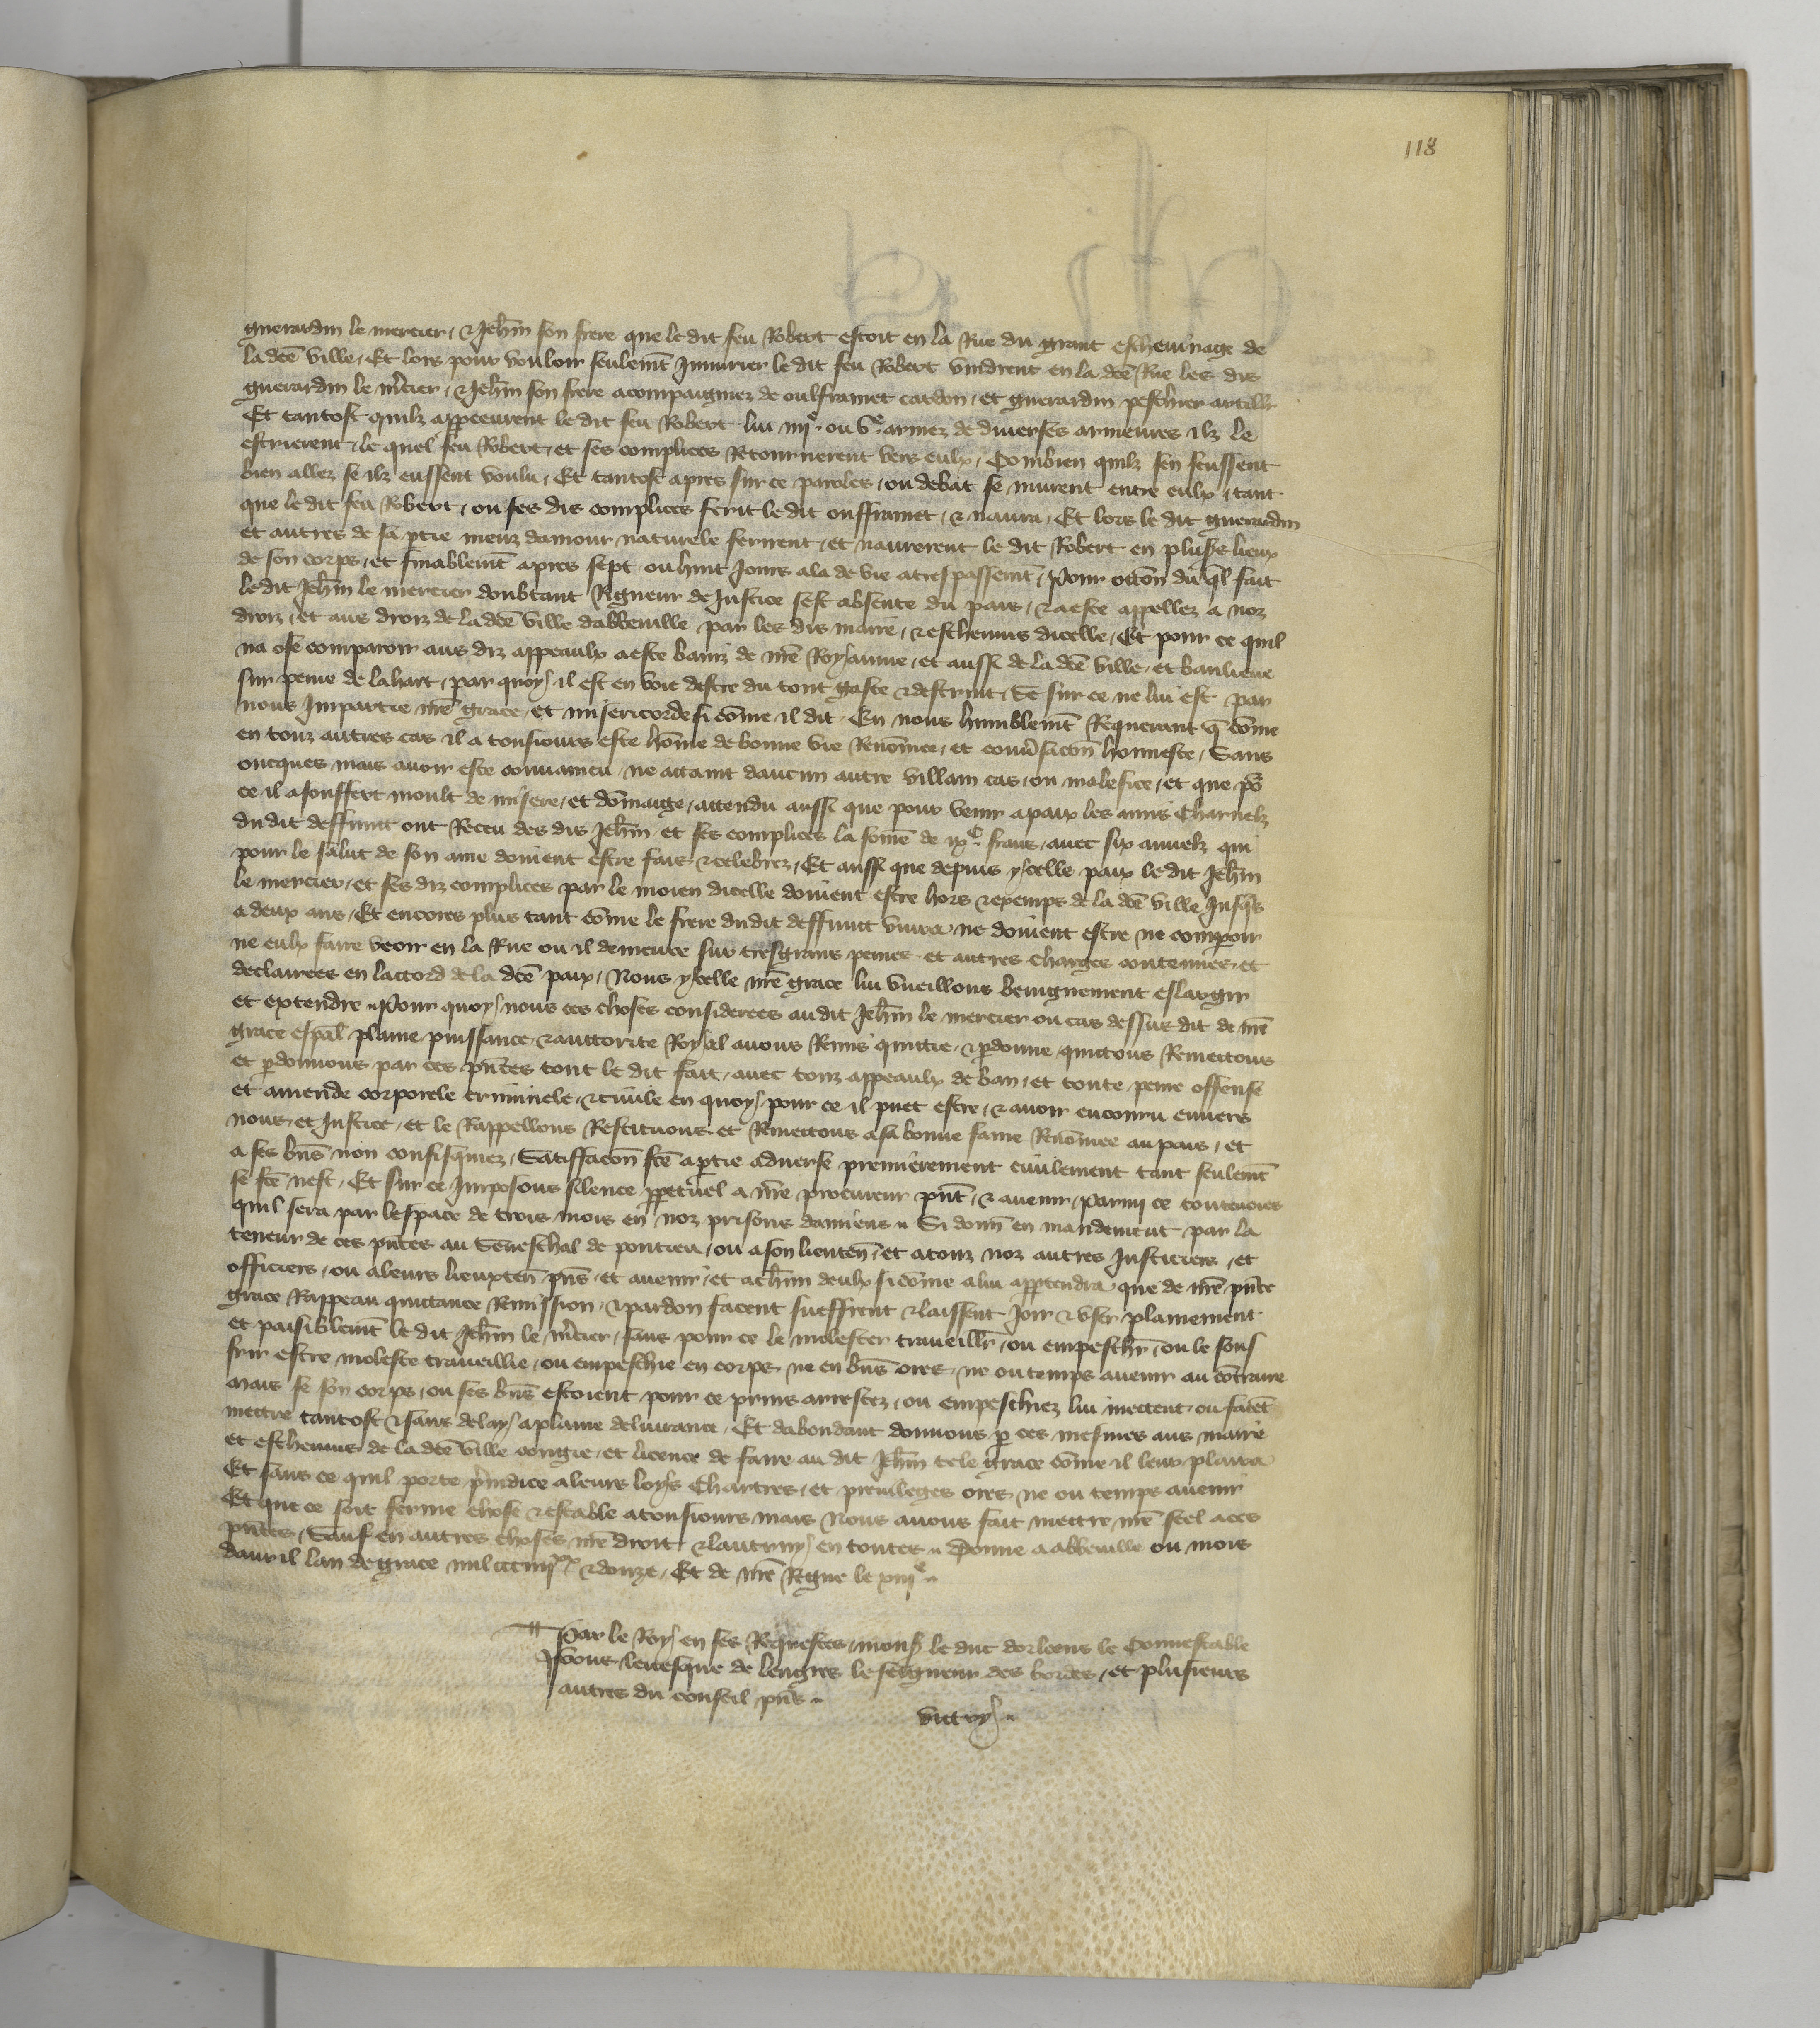 118
guerardin le mercier, & Jeh̄in son frere que le dit feu Robert estoit en la Rue du grant escheuinage de
la dc̄e ville, Et lors pour vouloir seulem̄t Iniurier le dit feu Robert vindrent en la dc̄e Rue les dis
guerardin le m̄cier, & Jeh̄in son frere acompaigniez de oulframet cardon, et guerardin
Et tantost quilz apperceurent le dit feu Robert lui iiij^e ou v^e armez de diuerses armeures ilz le
escrierent, le quel feu Robert, et ses complices Retournerent vers eulx, Combien quilz sen feussent
bien allez se ilz eussent voulu, Et tantost apres sur ce paroles, ou debat se murent entre eulx, tant
que le dit feu Robert, ou ses dis complices ferit le dit oufframet, & naura, Et lors le dit guerardin
et autres de sa p̄tie meuz damour naturele ferirent, et naurerent le dit Robert en plus̄rs lieux
de son corps, et finablem̄t apres sept ou huit Jours ala de vie a trespassem̄t, Pour occōn du ql̄ fait
le dit Jeh̄in le mercier doubtant Rigueur de Justice sest absente du pais, & a este appellez a noz
droiz, et aus droiz de la dc̄e ville dabbeuille par les dis maire, & escheuins dicelle, Et pour ce quil
na ose comparoir aus diz appeaulx a este baniz de nr̄e Royaume, et aussi de la dc̄e ville, et banlieue
sur peine de la hart, par quoy il est en voie destre du tout gaste & destruit, Se sur ce ne lui est par
nous Impartie nr̄e grace, et misericorde si cōme il dit. En nous humblem̄t Requerant q̄ cōme
en touz autres cas il a tousiours este hōme de bonne vie Renōmee, et conūsacōn honneste, Sans
oncques mais auoir este conuaincu, ne attaint daucun autre villain cas, ou malefice, et que pō
ce il a souffert moult de misere, et dōmaige, attendu aussi que pour venir a paix les amis Charnelz
du dit deffunt ont Receu des dis Jeh̄in, et ses complices la som̄e de ix^c frans, auec six annuelz qui
pour le salut de son ame doiuent estre fais & celebrez, Et aussi que depuis ycelle paix le dit Jeh̄in
le mercier, et ses diz complices par le moien dicelle doiuent estre hors & exemps de la dc̄e ville Jusq̄s
a deux ans, Et encores plus tant cōme le frere du dit deffunct viura ne doiuent estre ne comp̄oir
ne eulx faire veoir en la Rue ou il demeure sur tresgrans peines et autres charges contenues et
declairees en laccord de la dc̄e paix, Nous ycelle nr̄e grace lui vueillons benignement eslargir
et extendre Pour quoy nous ces choses considerees au dit Jeh̄in le mercier ou cas dessus dit de nr̄e
grace esp̄al plaine puissance & auttorite Royal auons Remis quittie, & p̄donne quittons Remettons
et p̄donnons par ces p̄ntes tout le dit fait, auec touz appeaulx de ban, et toute peine offense
et amende corporele criminele, & ciuile en quoy pour ce il puet estre, & auoir encouru enuers
nous et Justice, et le Rappellons Restituons et Remettons a sa bonne fame Renōmee au pais, et
a ses bn̄s non confisquiez, Satiffacōn fc̄e a p̄tie aduerse premierement ciuilement tant seulem̄t
se fc̄e nest, Et sur ce Imposons silence p̄petuel a nr̄e procureur p̄nt, & auenir, Parmi ce touteuoies
quil sera par lespace de trois mois en noz prisons damiens Si donn̄ en mandement par la
teneur de ces p̄ntes au Seneschal de pontieu, ou a son lieuten̄, et a touz noz autres Justiciers, et
officiers, ou a leurs lieuxten̄ p̄ns, et auenir, et a ch̄un deulx si cōme a lui app̄tendra que de nr̄e p̄nte
grace Rappeau quittance Remission, & pardon facent sueffrent & laissent Joir & vser plainement
et paisiblem̄t le dit Jeh̄in le m̄cier, sans pour ce le molester traueillr̄, ou empeschr̄, ou le souf
frir estre moleste traueillie, ou empeschie en corps ne en bn̄s ores, ne ou temps auenir au cōtraire
mais se son corps, ou ses bn̄s estoient pour ce prins arrestez, ou empeschiez lui mettent, ou facēt
mettre tantost & sans delay a plaine deliurance, Et dabondant donnons p̄ ces mesmes aus maire
et escheuins de la dc̄e ville congie, et licence de faire au dit Jeh̄in tele grace cōme il leur plaira
Et sans ce quil porte p̄iudice a leurs loys Chartres, et priuileges ores ne ou temps auenir
Et que ce soit ferme chose & estable a tousiours mais Nous auons fait mettre nr̄e seel a ces
p̄ntes, Sauf en autres choses nr̄e droit & lautruy en toutes Donne a abbeuille ou mois
dauril lan de grace mil ccc iiij^xx & douze, Et de nr̄e Regne le xiij^e
Par le Roy en ses Requestes, mons̄ le duc dorleens le Connestable
vous, leuesque de lengres le seigneur des bordes, et plusieurs
autres du conseil p̄ns
vittry